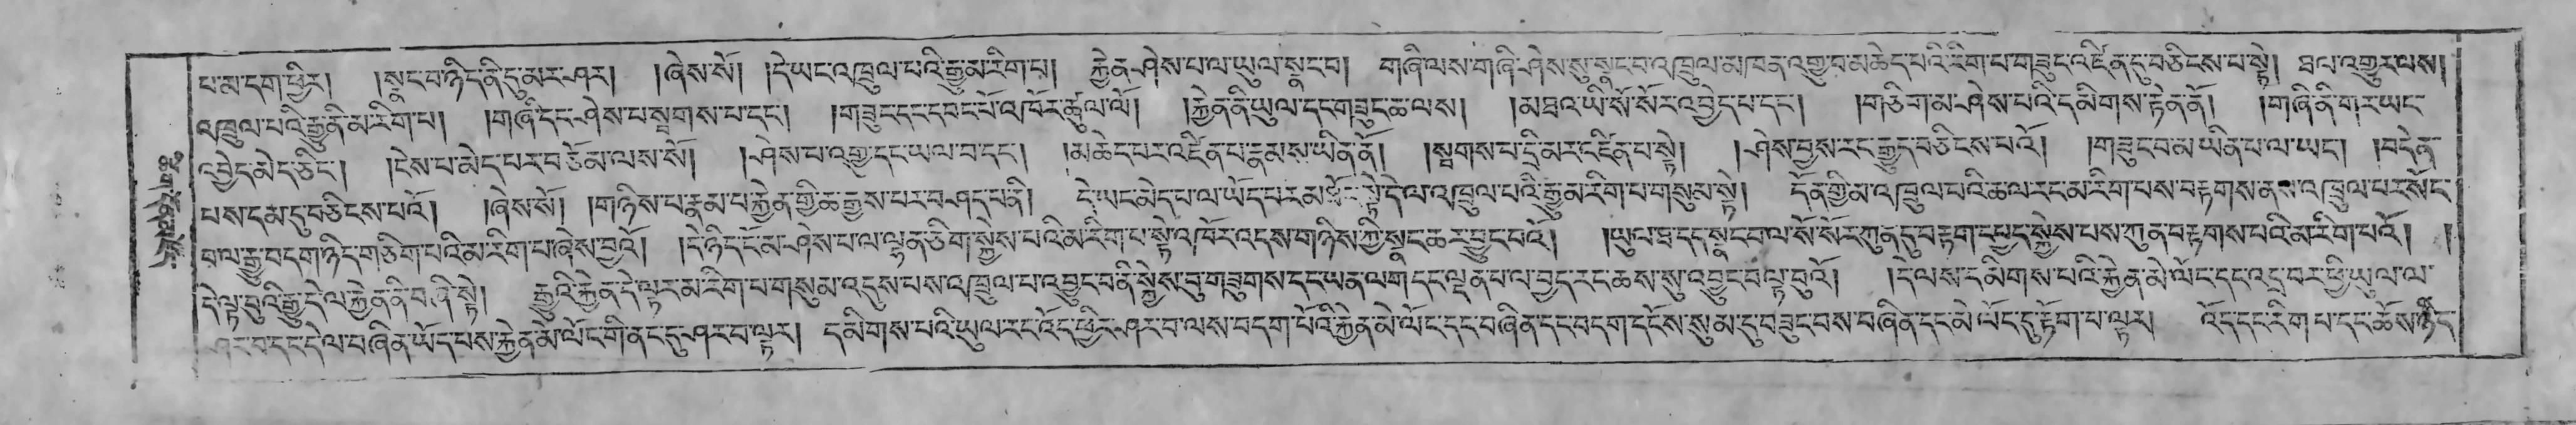 པ་མ་དག་ཕྱིར། །སྣང་བ་ཉིད་ནི་དུ་མར་ཤར། །ཞེས་སོ། །དེ་ཡང་འཁྲུལ་པའི་རྒྱུ་མ་རིག་པ། རྐྱེན་ཤེས་པ་ལ་ཡུལ་སྣང་བ། གཞི་ལས་གཞི་ཤེས་སུ་སྣང་བ་འཁྲུལ་མཁན་འགྱུ་བ་མཆེད་པའི་རིག་པ་གཟུང་འཛིན་དུ་བཅིངས་པ་སྟེ། ཐལ་འགྱུར་ལས།
འཁྲུལ་པའི་རྒྱུ་ནི་མ་རིག་པ། །གཞི་དང་ཤེས་པ་སྦགས་པ་དང་། །གཟུང་དང་དབང་པོ་འཁོར་ཚུལ་ལོ། །རྐྱེན་ནི་ཡུལ་དང་གཟུང་ཆ་ལས། །མཐའ་ཡི་སོ་སོར་འབྱེད་པ་དང་། །གཅིག་མ་ཤེས་པའི་དམིགས་རྟེན་ནོ། །གཞི་ནི་གར་ཡང་
འབྱེད་མེད་ཅིང་། །ངེས་པ་མེད་པར་བཙོམ་ལས་སོ། །ཤེས་པ་འགྱུ་དང་ཡལ་བ་དང་། །མཆེད་པར་འཛིན་པ་རྣམས་ཡིན་ནོ། །སྦགས་པ་དྲི་མར་ངང་འཛིན་པ་སྟེ། །ཤེས་བྱས་རང་རྒྱུད་བཅིངས་པའོ། །གཟུང་བ་མ་ཡིན་པ་ལ་ཡང་། །བདེན་
པས་དམ་དུ་བཅིངས་པའོ། །ཞེས་སོ། །གཉིས་པ་རྣམ་པ་རྐྱེན་གྱི་ཆ་རྒྱས་པར་བཤད་པ་ནི། དེ་ཡང་མེད་པ་ལ་ཡོད་པར་མ་ སྟེ་དེ་ལ་འཁྲུལ་པའི་རྒྱུ་མ་རིག་པ་གསུམ་སྟེ། དོན་གྱི་མ་འཁྲུལ་པའི་ཆ་ལ་རང་མ་རིག་པས་བརྟགས་ནས་འཁྲུལ་པར་སོང་
བ་ལ་རྒྱུ་བདག་ཉིད་གཅིག་པའི་མ་རིག་པ་ཞེས་བྱའོ། །དེ་ཉིད་ངོ་མ་ཤེས་པ་ལ་ལྷན་ཅིག་སྐྱེས་པའི་མ་རིག་པ་སྟེ་འཁོར་འདས་གཉིས་ཀྱི་སྣང་ཆར་བྱུང་པའོ། །ཡུལ་ཐ་དད་སྣང་བ་ལ་སོ་སོར་ཀུན་དུ་བརྟག་དཔྱད་སྐྱེས་པས་ཀུན་བརྟགས་པའི་མ་རིག་པའོ། །
དེ་ལྟ་བུའི་རྒྱུ་དེ་ལ་རྐྱེན་ནི་བཞི་སྟེ། རྒྱུའི་རྐྱེན་དེ་ལྟར་མ་རིག་པ་གསུམ་འདུས་པས་འཁྲུལ་པ་འབྱུང་བ་ནི་སྐྱེས་བུ་གཟུགས་དང་ཡན་ལག་དང་ལྡན་པ་ལ་བྱད་རང་ཆས་སུ་འབྱུང་བ་ལྟ་བུའོ། །དེ་ལས་དམིགས་པའི་རྐྱེན་མེ་ལོང་དང་འདྲ་བར་ཕྱི་ཡུལ་ལ་
ཤར་བ་དང་དེ་ལ་བཞིན་ཡོད་པས་རྐྱེན་མེ་ལོང་གི་ནང་དུ་ཤར་བ་ལྟར། དམིགས་པའི་ཡུལ་རང་འོད་ཕྱིར་ཤར་བ་ལས་བདག་པོའི་རྐྱེན་མེ་ལོང་དང་བཞིན་དང་བདག་དངོས་སུ་མ་དུ་བཟུང་བས་བཞིན་དང་མེ་ལོང་དུ་རྟོག་པ་ལྟར། འོད་དང་རིག་པ་དང་ཆོས་ཉིད་